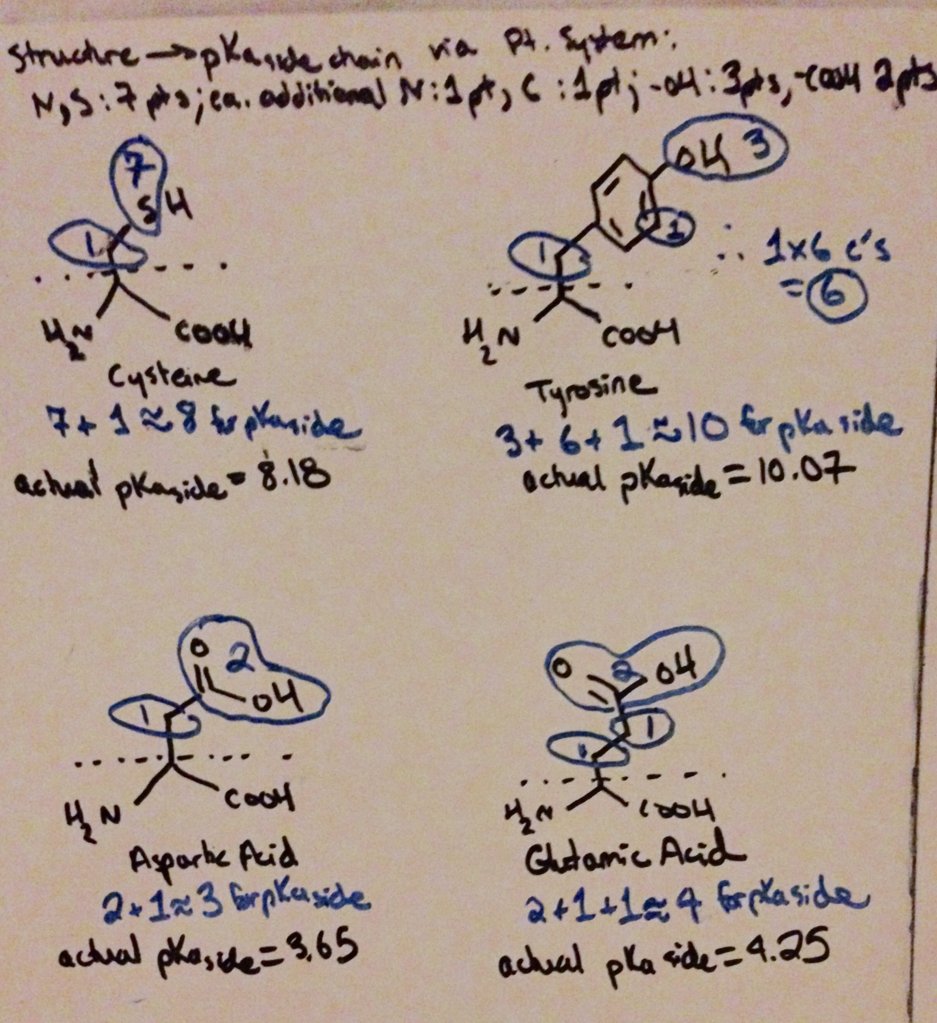 Structure → pKa side chain via Pt. System:
N, S: 7 pts; ea. additional N: 1 pt, C: 1 pt; -OH: 3 pts, -COOH 2 pts
7
S H
1
H₂N COOH
Cysteine
7 + 1 ≈ 8 for pKa side
actual pKa side = 8.18
OH 3
1
1
∴ 1x6 c's
= 6
H₂N COOH
Tyrosine
3 + 6 + 1 ≈ 10 for pKa side
actual pKa side = 10.07
O 2
OH
1
H₂N COOH
Aspartic Acid
2 + 1 ≈ 3 for pKa side
actual pKa side = 3.65
O 2 OH
1
1
H₂N COOH
Glutamic Acid
2 + 1 + 1 ≈ 4 for pKa side
actual pKa side = 4.25